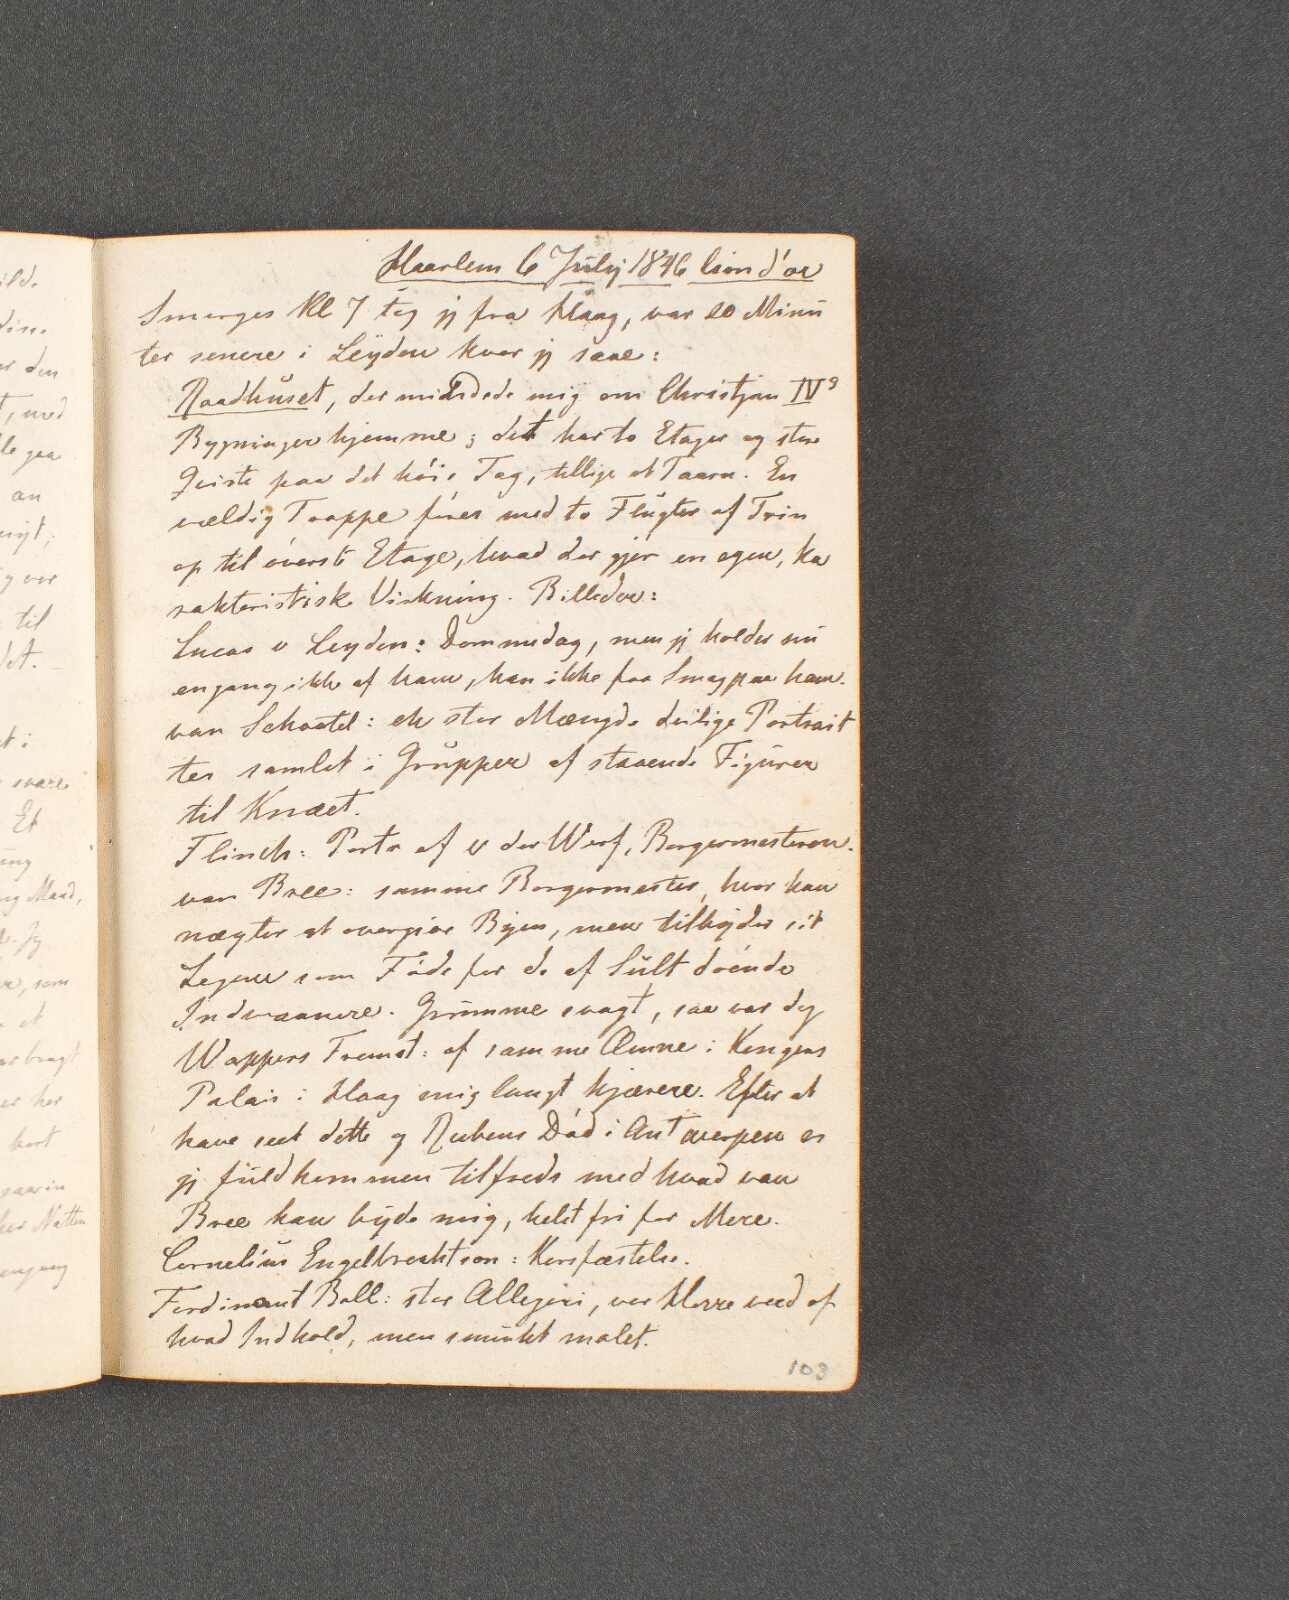 Haarlem 6 July 1846 lion d'or
Imorges Kl 7 tog jj fra Haag, var 20 Minu
ter senere i Leyden hvor jj saae:
Raadhuset, der mindede mig om Christjan IVs
Bygninger hjemme; det har to Etager og store
Qviste paa det høie Tag, tillige et Taarn. En
vældig Trappe fører med to Flugter af Trin
op til øverste Etage, hvad der gjør en egen, ka
rakteristisk Virkning. Billeder:
Lucas v Leyden: Dommedag, men jj holder nu
engang ikke af ham, kan ikke faa Smag paa ham.
van Schootel: en stor Mængde deilige Portrait
ter samlet i Grupper af staaende Figurer
til Knæet.
Flinch: Portr af v der Werf, Borgermesteren.
van Bree: samme Borgermester, hvor han
nægter at overgive Byen, men tilbyder sit
Legeme som Føde for de af Sult døende
Indvaanere. Grumme svagt, saa var dog
Wappers Fremst: af samme Æmne i Kongens
Palais i Haag mig langt kjærere. Efter at
have seet dette og Rubens Død i Antwerpen er
jj fuldkommen tilfreds med hvad van
Bree kan byde mig, helst fri for Mere.
Cornelius Engelbrechtson: Korsfæstelse.
Ferdinant Boll: stor Allegori, vor Herre veed af
hvad Indhold, men smukt malet.
103